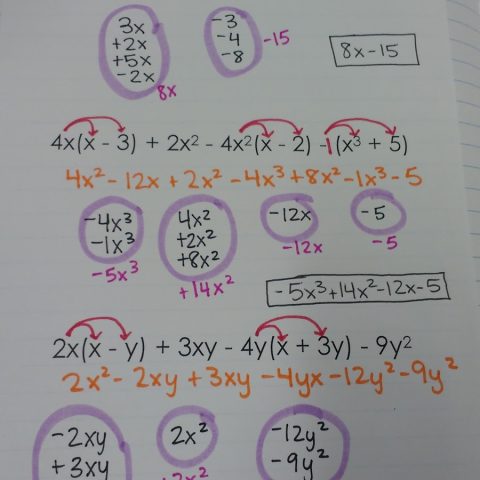 3x
+2x
+5x
-2x
8x
-3
-4
-8
-15
8x-15
4x(x - 3) + 2x² - 4x²(x - 2) -1(x³ + 5)
4x² - 12x + 2x² - 4x³ + 8x² - 1x³ - 5
-4x³
-1x³
-5x³
4x²
+2x²
+8x²
+14x²
-12x
-12x
-5
-5
-5x³+14x²-12x-5
2x(x - y) + 3xy - 4y(x + 3y) - 9y²
2x² - 2xy + 3xy - 4yx - 12y² - 9y²
-2xy
+3xy
2x²
-12y²
-9y²